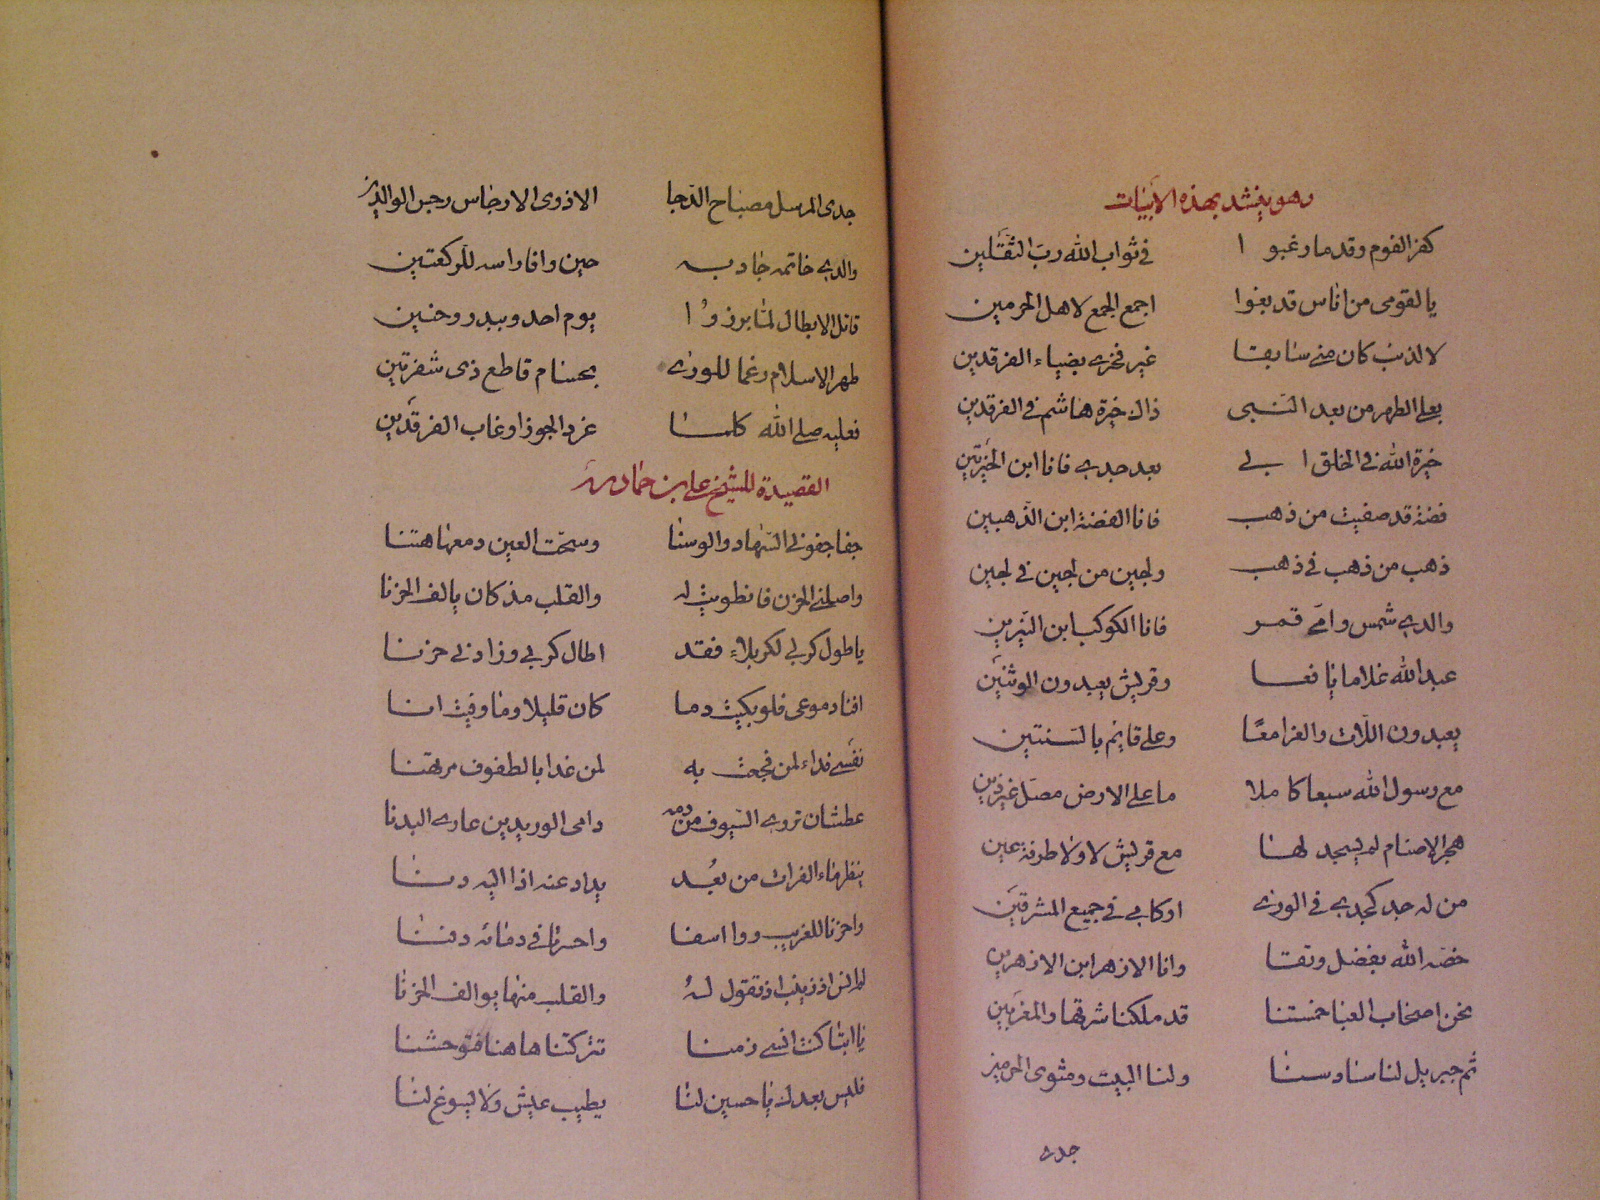 وهو ينشد بهذه الأبيات
كفر القوم وقدما رغبوا في ثواب الله رب الثقلين
يا لقومي من اناس قد بغوا اجمع الجمع لاهل الحرمين
لا لذنب كان مني سابقا غير فخري بضياء الفرقدين
بعلي الطهر من بعد النبي ذاك خيرة هاشم في الفرقدين
خيرة الله في الخلق ابي بعد جدي فانا ابن الخيرتين
فضة قد صفيت من ذهب فانا الفضة ابن الذهبين
ذهب من ذهب في ذهب ولجين من لجين في لجين
والدي شمس وامي قمر فانا الكوكب ابن النيرين
عبد الله غلاما يافعا وقريش يعبدون الوثنين
يعبدون اللات والعزا معًا وعلي قايم بالسنتين
مع رسول الله سبعا كاملا ما على الارض مصل غير ذين
هجر الاصنام لم يسجد لها مع قريش لا ولا طرفة عين
من له جد كجدي في الورى او كابي في جميع المشرقين
خصه الله بفضل وتقا وانا الازهر ابن الازهرين
نحن اصحاب العبا خمستنا قد ملكنا شرقها والمغربين
ثم جبريل لنا سادسنا ولنا البيت ومثوى الحرمين
جدي
جدي المرسل مصباح الدجا الاذوى الارجاس رجس الوالدين
والدي خاتمه جاد به حين وافا راسه للركعتين
قاتل الابطال لما برزوا يوم احد وببدر وحنين
طهر الاسلام رغما للورى بحسام قاطع ذي شفرتين
فعليه صلى الله كلما غرد الجوزا وغاب الفرقدين
القصيدة للشيخ علي بن حماد
جفا جفوني السهاد والوسنا وسحت العين دمعها هتنا
واصلني الحزن فانطويت له والقلب مذ كان يالف الحزنا
يا طول كربي لكربلاء فقد اطال كربي وزادني حزنا
افنا دموعي فلو بكيت دما كان قليلا وما وفيت انا
نفسي فداء لمن فجعت به لمن غدا بالطفوف مرتهنا
عطشان تروى السيوف من دمه دامي الوريدين عاري البدنا
ينظر ماء الفرات من بعد يداد عنه اذا اليه دنا
واحزنا للغريب ووا اسفا واحسرتا في دمائه دفنا
لم انس اذ زينب اذ تقول له والقلب منها يوالف الحزنا
يا ابتا كنت انسي زمنا تركتنا هاهنا فتوحشنا
فليس بعدك يا حسين لنا يطيب عيش ولا يسوغ لنا